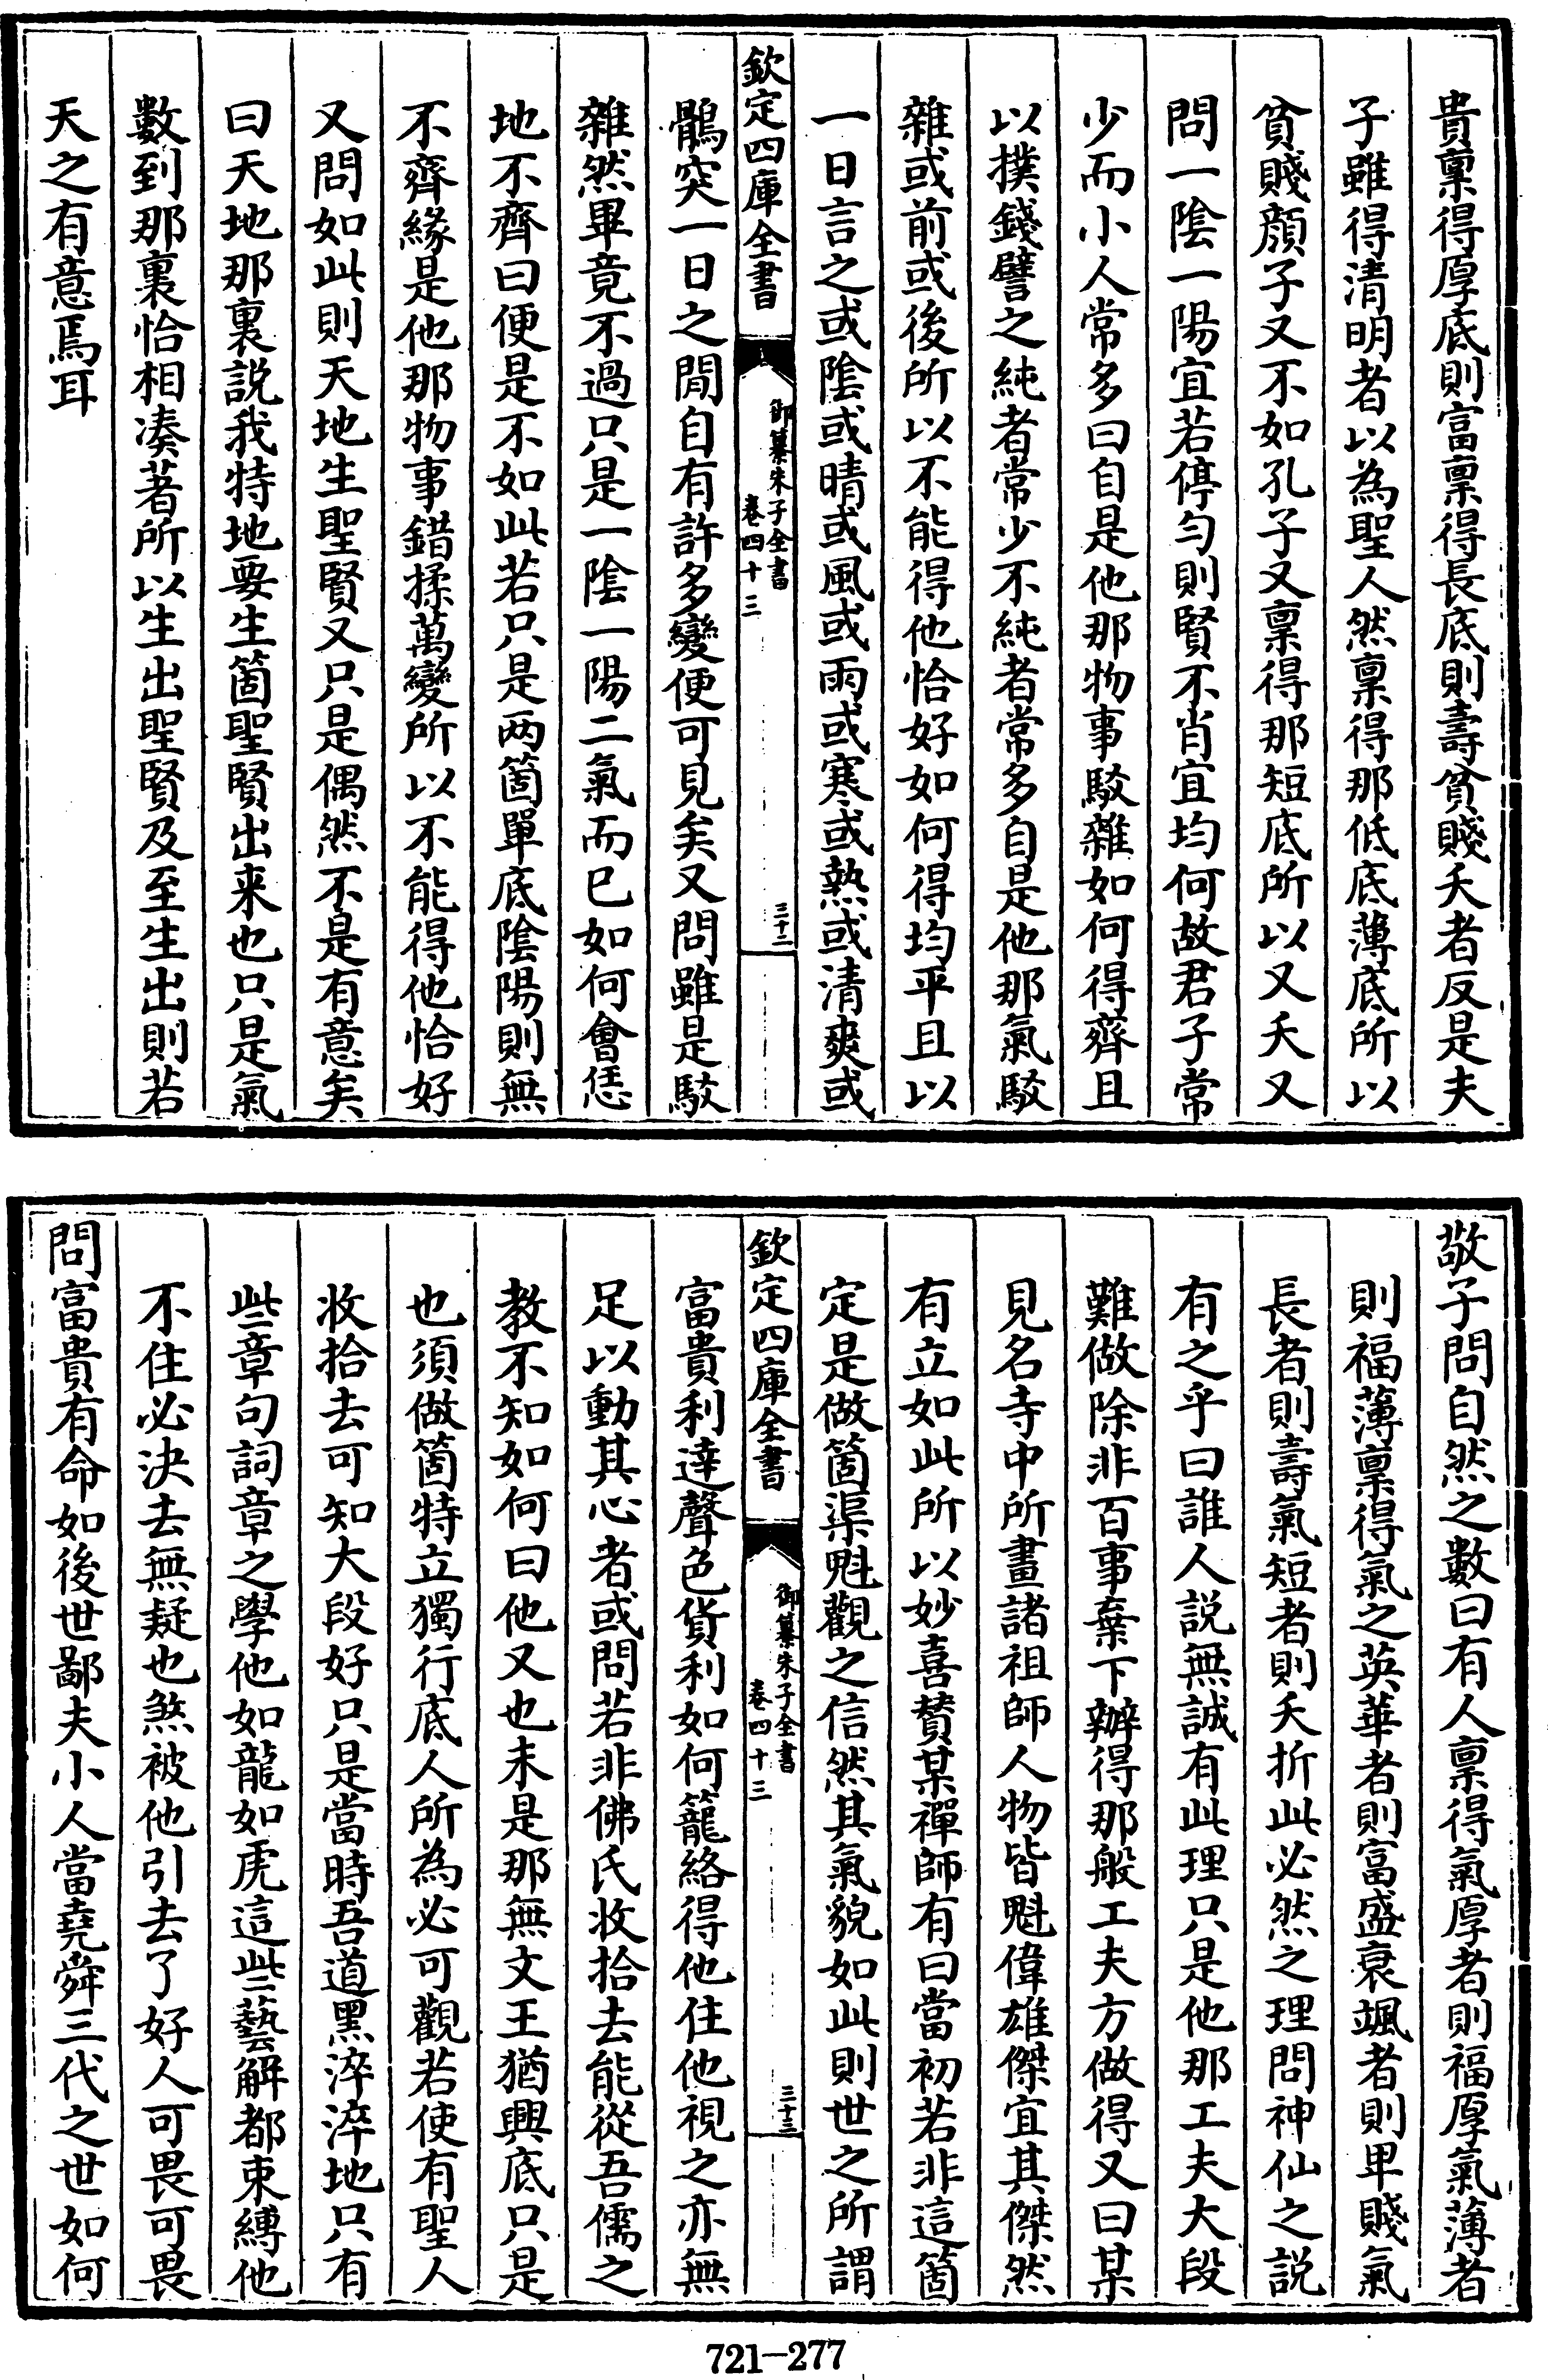 貴稟得厚底則富稟得長底則壽貧賤夭者反是夫
子雖得清明者以為聖人然稟得那低底薄底所以
貧賤顔子又不如孔子又稟得那短底所以又夭又
問一陰一陽宜若停勻則賢不肖宜均何故君子常
少而小人常多曰自是他那物事駁雜如何得齊且
以撲錢譬之純者常少不純者常多自是他那氣駁
雜或前或後所以不能得他恰好如何得均平且以
一日言之或陰或晴或風或雨或寒或熱或清爽或
欽定四庫全書
御纂朱子全書
卷四十三
三十二
鶻突一日之間自有許多變便可見矣又問雖是駁
雜然畢竟不過只是一陰一陽二氣而已如何會恁
地不齊曰便是不如此若只是兩箇單底陰陽則無
不齊緣是他那物事錯揉萬變所以不能得他恰好
又問如此則天地生聖賢又只是偶然不是有意矣
曰天地那裏説我特地要生箇聖賢出来也只是氣
數到那裏恰相凑著所以生出聖賢及至生出則若
天之有意焉耳
敬子問自然之數曰有人稟得氣厚者則福厚氣薄者
則福薄稟得氣之英華者則富盛衰颯者則卑賤氣
長者則壽氣短者則夭折此必然之理問神仙之説
有之乎曰誰人説無誠有此理只是他那工夫大段
難做除非百事棄下辦得那般工夫方做得又曰某
見名寺中所畫諸祖師人物皆魁偉雄傑宜其傑然
有立如此所以妙喜贊某禪師有曰當初若非這箇
定是做箇渠魁觀之信然其氣貌如此則世之所謂
欽定四庫全書
御纂朱子全書
卷四十三
三十三
富貴利達聲色貨利如何籠絡得他住他視之亦無
足以動其心者或問若非佛氏收拾去能從吾儒之
教不知如何曰他又也未是那無文王猶興底只是
也須做箇特立獨行底人所為必可觀若使有聖人
收拾去可知大段好只是當時吾道黑淬淬地只有
些章句詞章之學他如龍如虎這些藝解都束縛他
不住必決去無疑也煞被他引去了好人可畏可畏
問富貴有命如後世鄙夫小人當堯舜三代之世如何
721-277